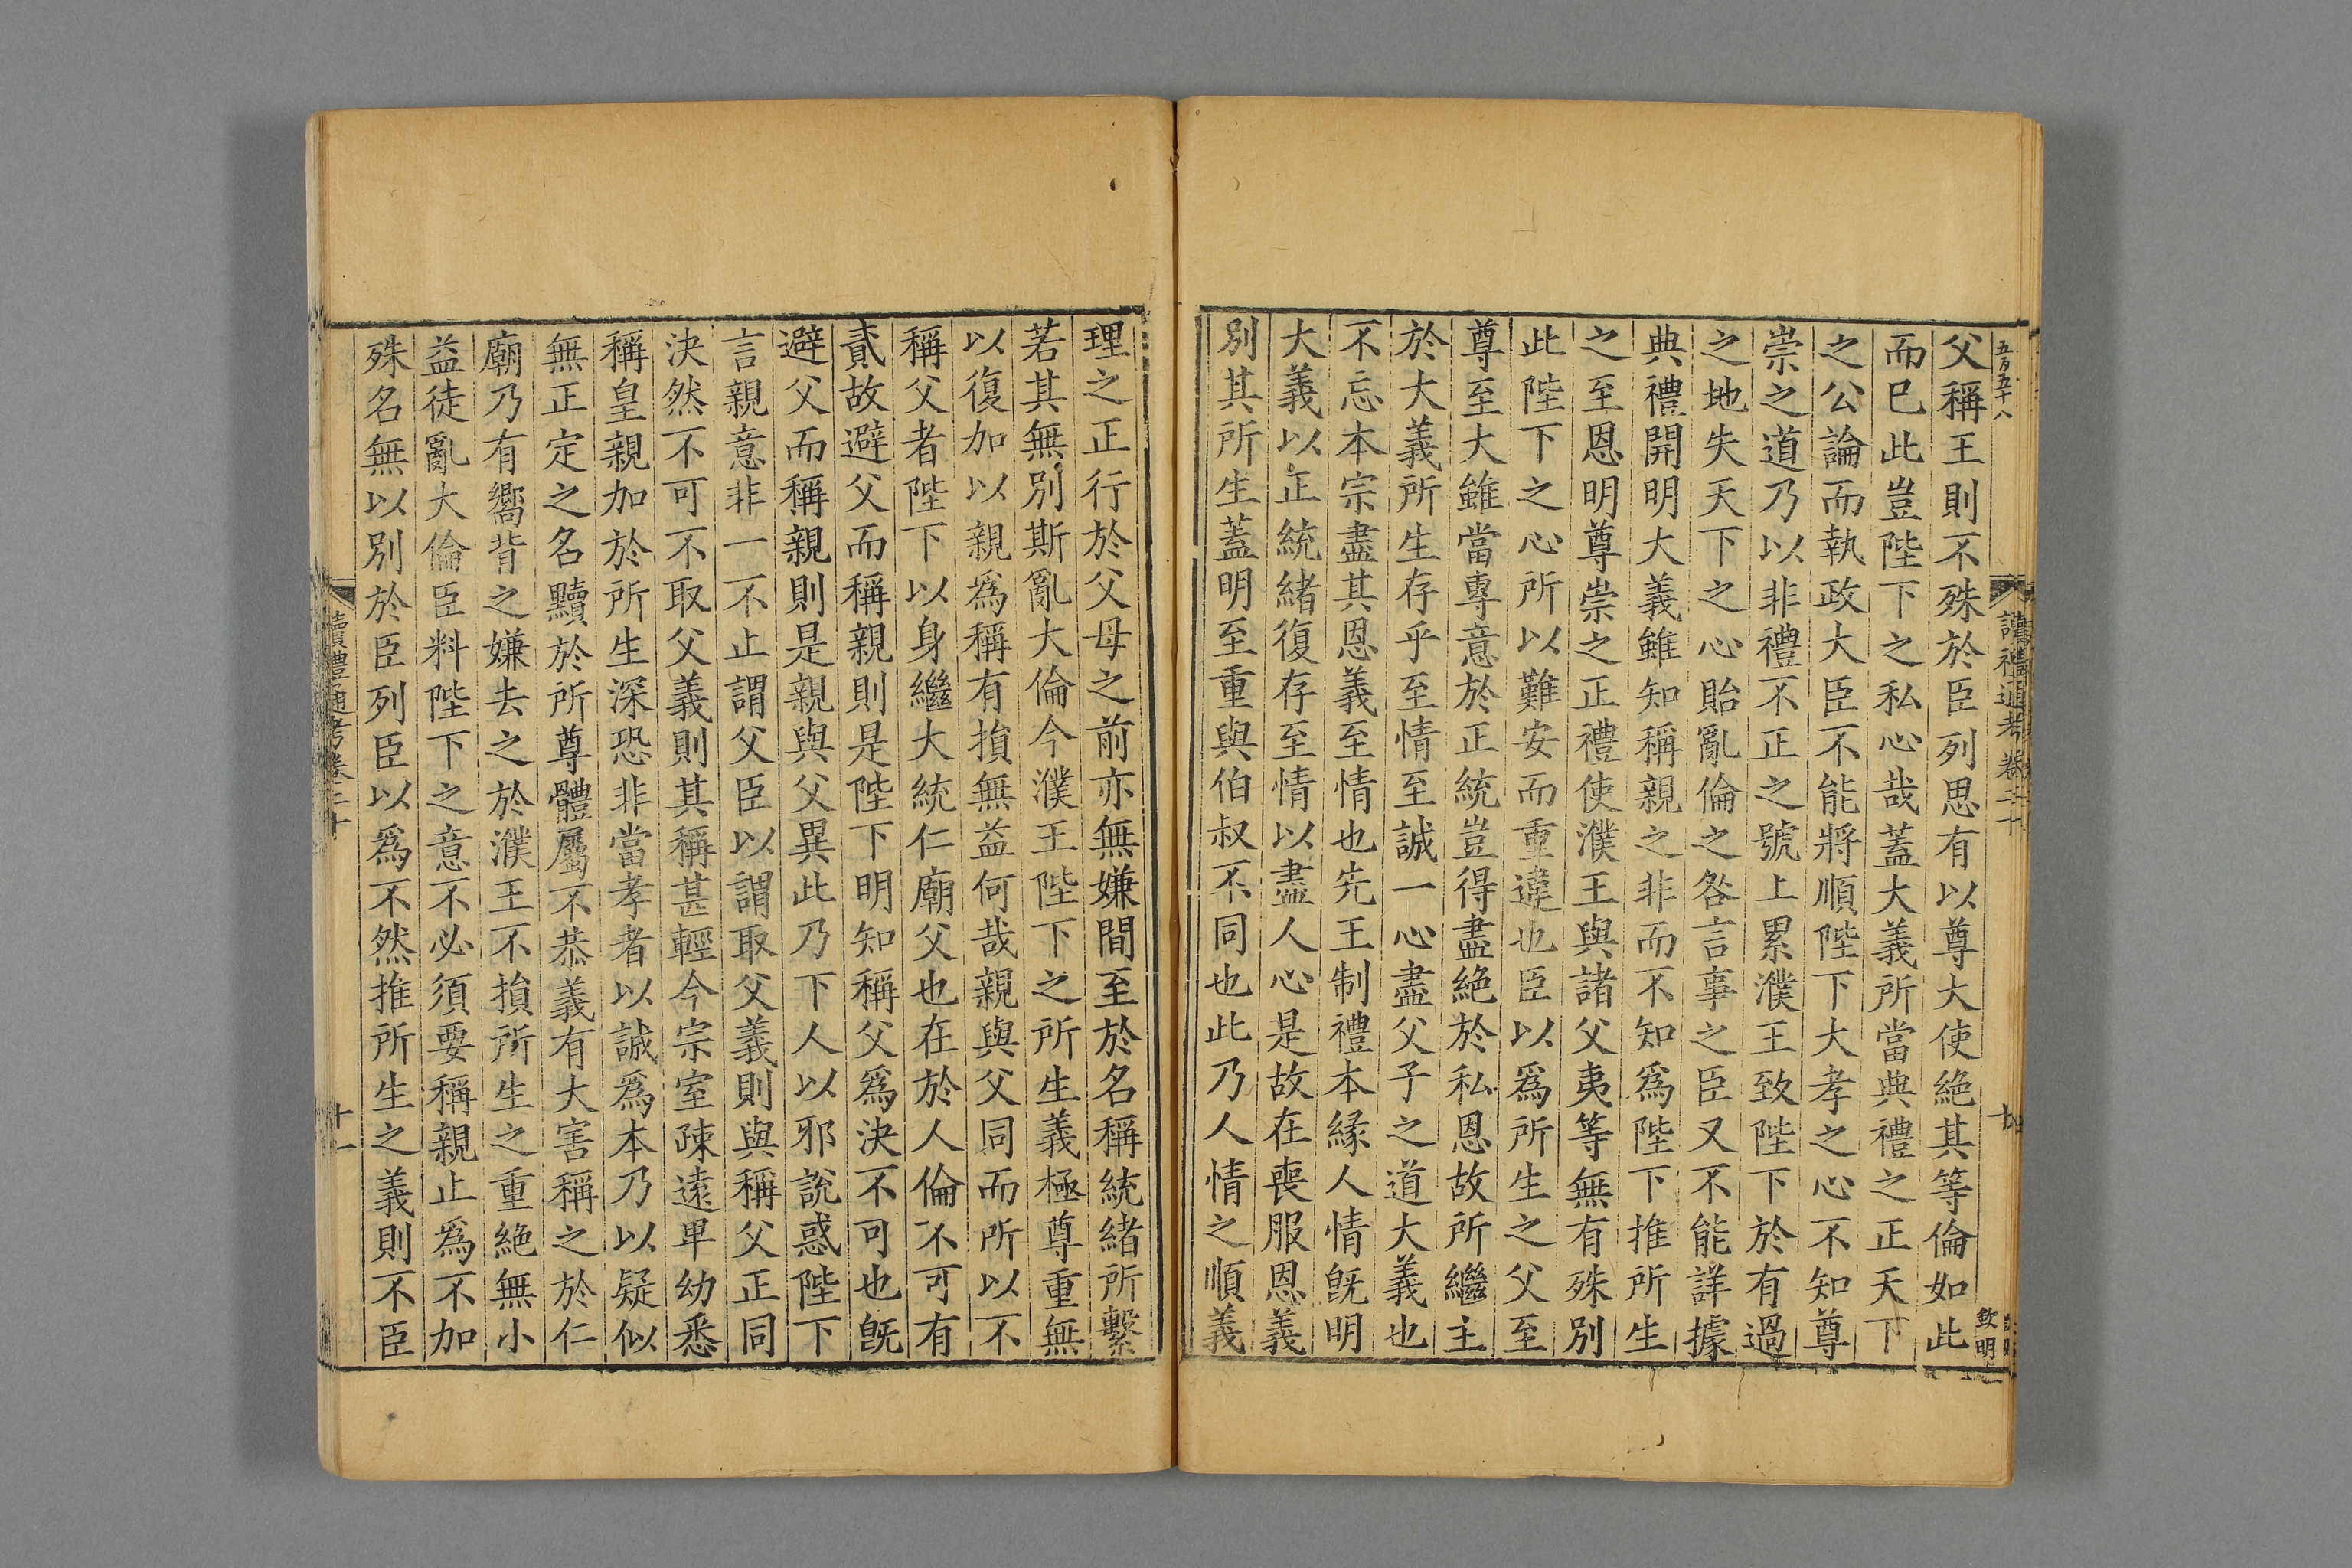 五百五十八
讀禮通考卷二十
欽明
父稱王則不殊於臣列思有以尊大使絶其等倫如此
而已此豈陛下之私心哉蓋大義所當典禮之正天下
之公論而執政大臣不能將順陛下大孝之心不知尊
崇之道乃以非禮不正之號上累濮王致陛下於有過
之地失天下之心貽亂倫之咎言事之臣又不能詳據
典禮開明大義雖知稱親之非而不知爲陛下推所生
之至恩明尊崇之正禮使濮王與諸父夷等無有殊別
此陛下之心所以難安而重違也臣以爲所生之父至
尊至大雖當專意於正統豈得盡絶於私恩故所繼主
於大義所生存乎至情至誠一心盡父子之道大義也
不忘本宗盡其恩義至情也先王制禮本縁人情旣明
大義以正統緒復存至情以盡人心是故在喪服恩義
別其所生蓋明至重與伯叔不同也此乃人情之順義
理之正行於父母之前亦無嫌間至於名稱統緒所繫
若其無別斯亂大倫今濮王陛下之所生義極尊重無
以復加以親爲稱有損無益何哉親與父同而所以不
稱父者陛下以身繼大統仁廟父也在於人倫不可有
貳故避父而稱親則是陛下明知稱父爲決不可也旣
避父而稱親則是親與父異此乃下人以邪說惑陛下
言親意非一不止謂父臣以謂取父義則與稱父正同
決然不可不取父義則其稱甚輕今宗室疎遠卑幼悉
稱皇親加於所生深恐非當孝者以誠爲本乃以疑似
無正定之名黷於所尊體屬不恭義有大害稱之於仁
廟乃有嚮背之嫌去之於濮王不損所生之重絶無小
益徒亂大倫臣料陛下之意不必須要稱親止爲不加
殊名無以別於臣列臣以爲不然推所生之義則不臣
讀禮通考卷二十
十一